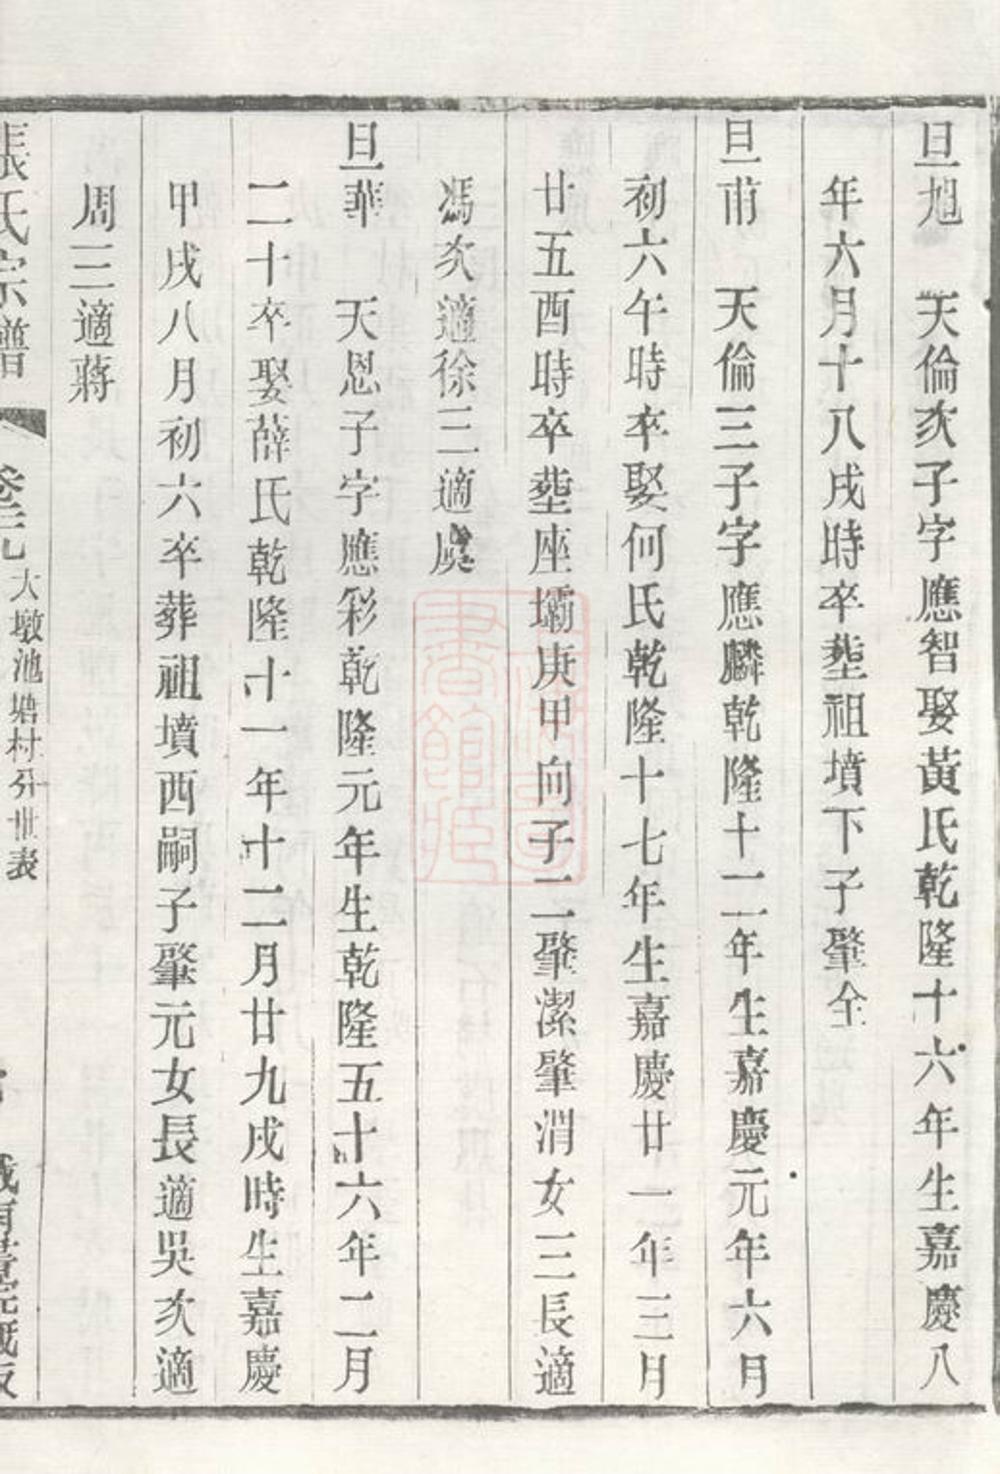 旦旭 天倫次子字應智娶黃氏乾隆十六年生嘉慶八
年六月十八戌時卒塟祖墳下子肇全
旦甫 天倫三子字應麟乾隆十二年生嘉慶元年六月
初六午時卒娶何氏乾隆十七年生嘉慶廿一年三月
廿五酉時卒塟座壩庚甲向子二肇潔肇渭女三長適
馮次適徐三適虞
旦華 天恩子字應彩乾隆元年生乾隆五十六年二月
二十卒娶薛氏乾隆十一年十二月廿九戌時生嘉慶
甲戌八月初六卒葬祖墳西嗣子肇元女長適吳次適
周三適蔣
張氏宗譜 大墩池塘村分世表